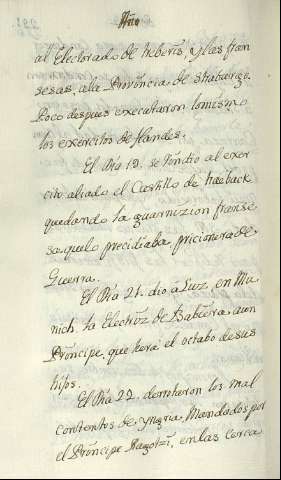 Año
al Electorado de Heberis, y las fran
sesas, a la Provincia de strasburgo.
Poco despues executaron lo mismo
los exercitos de flandes.
El Dia 19. se rindio al exer
cito aliado el Castillo de haeback
quedando la guarnizion franse
sa que lo precidiaba pricionera de
Guerra.
El Dia 21. dio a Luz, en Mu
nich, la Electriz de Babiera, a un
Principe, que hera el octabo de sus
hijos.
El Dia 22. derrotaron los mal
contentos de yngria, Mandados por
el Principe Ragotzi, en las cerca